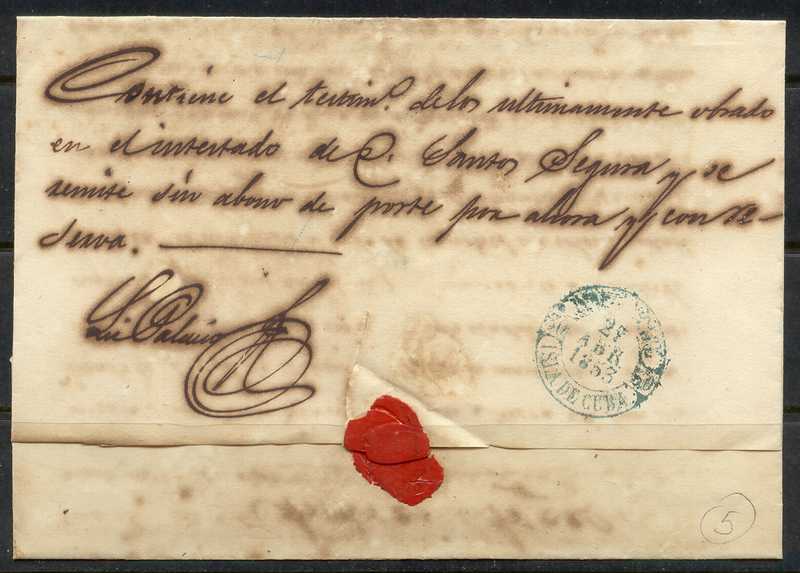 Contiene el testim.º de los ultimamente obrado
en el intestado de C. Santos Segura y se
remite sin abono de porte por ahora y con re-
serva.
Palacio
27
ABR
1853
ISLA DE CUBA
5